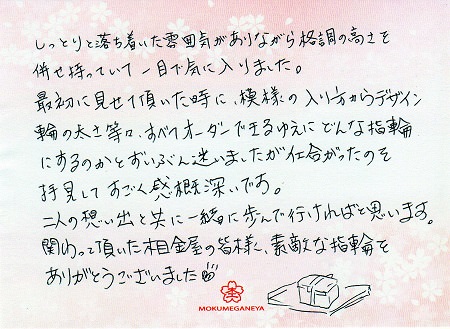 しっとりと落ち着いた雰囲気がありながら格調の高さを
併せ持っていて一目で気に入りました。
最初に見せて頂いた時に、模様の入り方からデザイン
輪の太さ等、すべてオーダーできるゆえにどんな指輪
にするのかとずいぶん迷いましたが仕上がったのを
拝見してすごく感慨深いです。
二人の想い出と共に一緒に歩んで行ければと思います。
関わって頂いた杢目金屋の皆様、素敵な指輪を
ありがとうございました
MOKUMEGANEYA